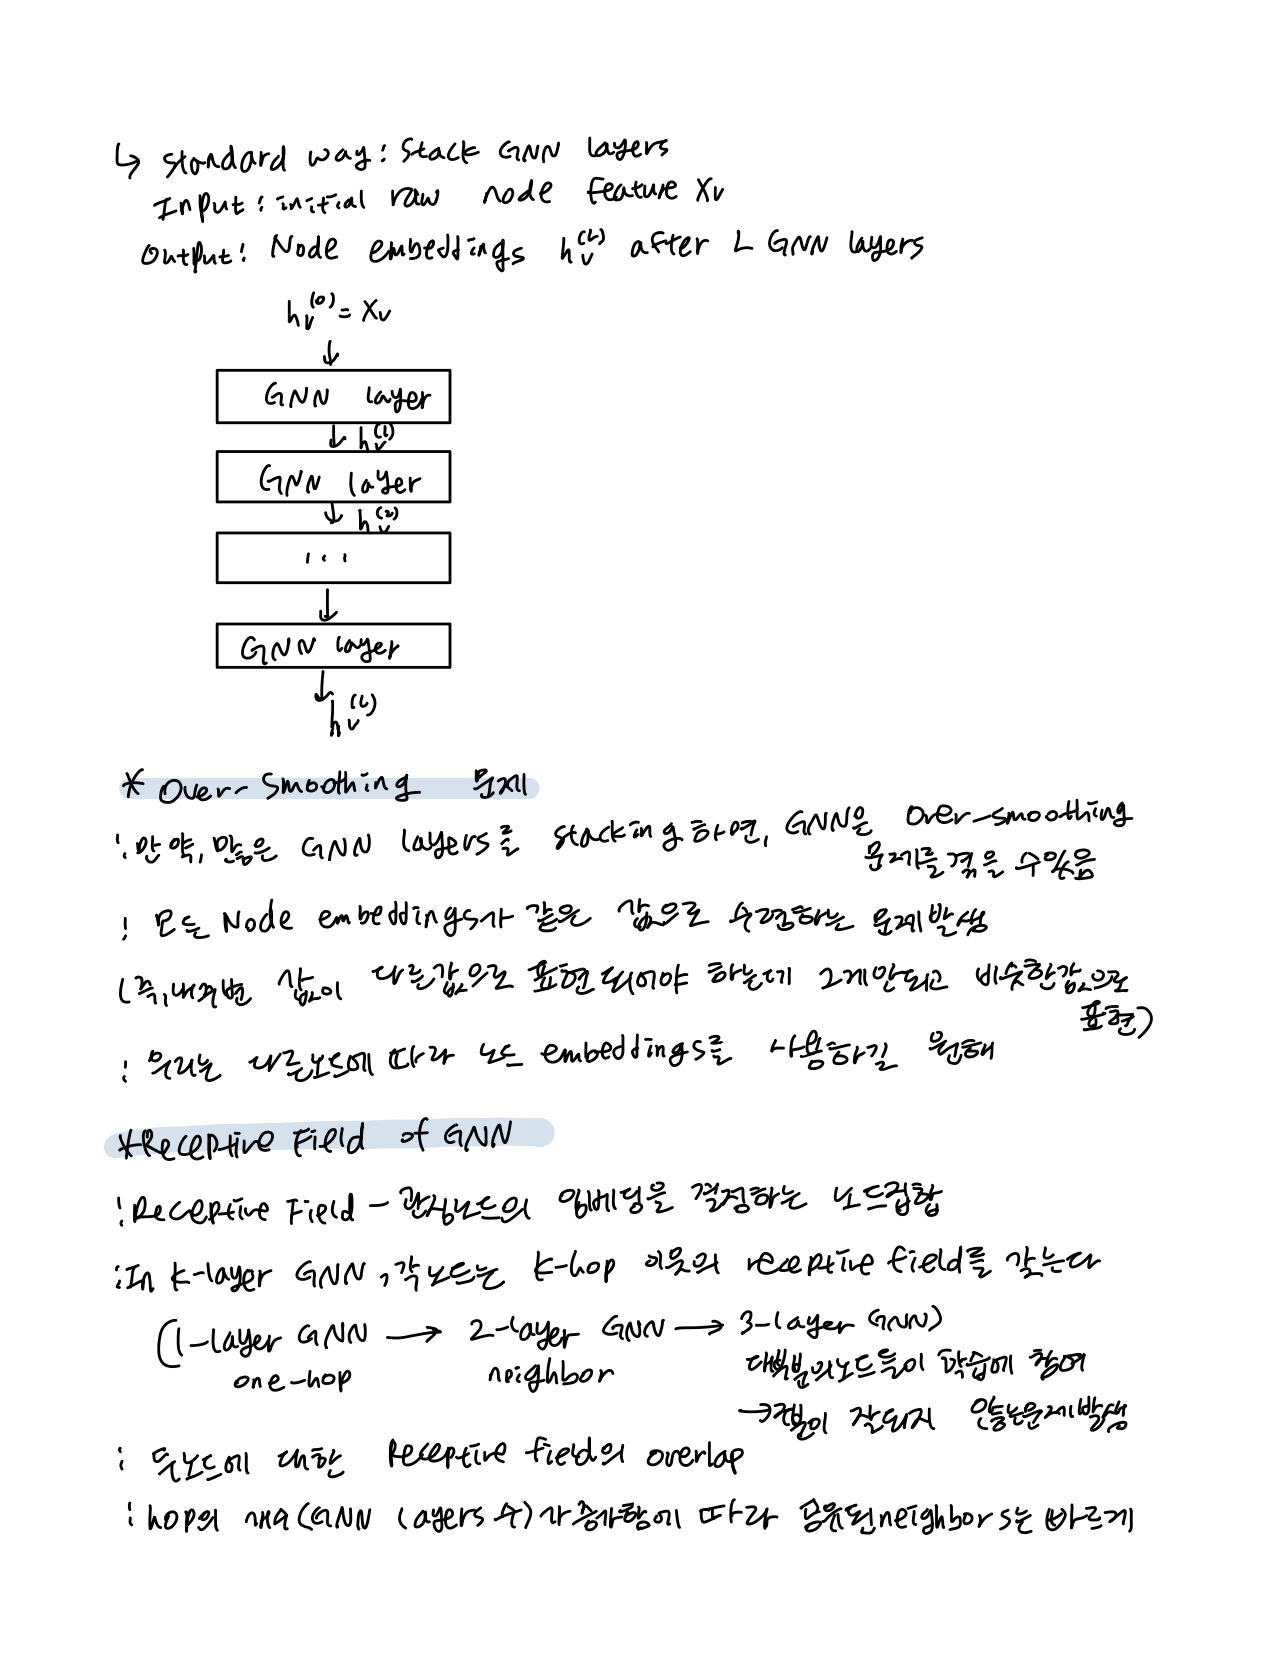 ↳ standard way: Stack GNN layers
Input: initial raw node feature Xv
Output: Node embeddings hv^(L) after L GNN layers
hv^(0) = Xv
↓
GNN layer
↓ hv^(1)
GNN layer
↓ hv^(2)
...
↓
GNN layer
↓
hv^(L)
* Over-smoothing 문제
: 만약, 많은 GNN layers를 stacking하면, GNN은 over-smoothing
문제를 겪을 수 있음
: 모든 Node embeddings가 같은 값으로 수렴하는 문제 발생
(즉, 내 주변 값이 다른값으로 표현되어야 하는데 그게 안되고 비슷한 값으로
표현)
: 우리는 다른노드에 따라 노드 embeddings를 사용하길 원해
*Receptive Field of GNN
: Receptive Field - 관심노드의 임베딩을 결정하는 노드집합
: In K-layer GNN, 각 노드는 K-hop 이웃의 receptive field를 갖는다
(1-layer GNN → 2-layer GNN → 3-layer GNN)
one-hop neighbor 대부분의 노드들이 학습에 참여
→ 구분이 잘되지 않는 문제 발생
: 두 노드에 대한 Receptive field의 overlap
: hop의 개수(GNN layers 수)가 증가함에 따라 공유된 neighbors는 빠르게